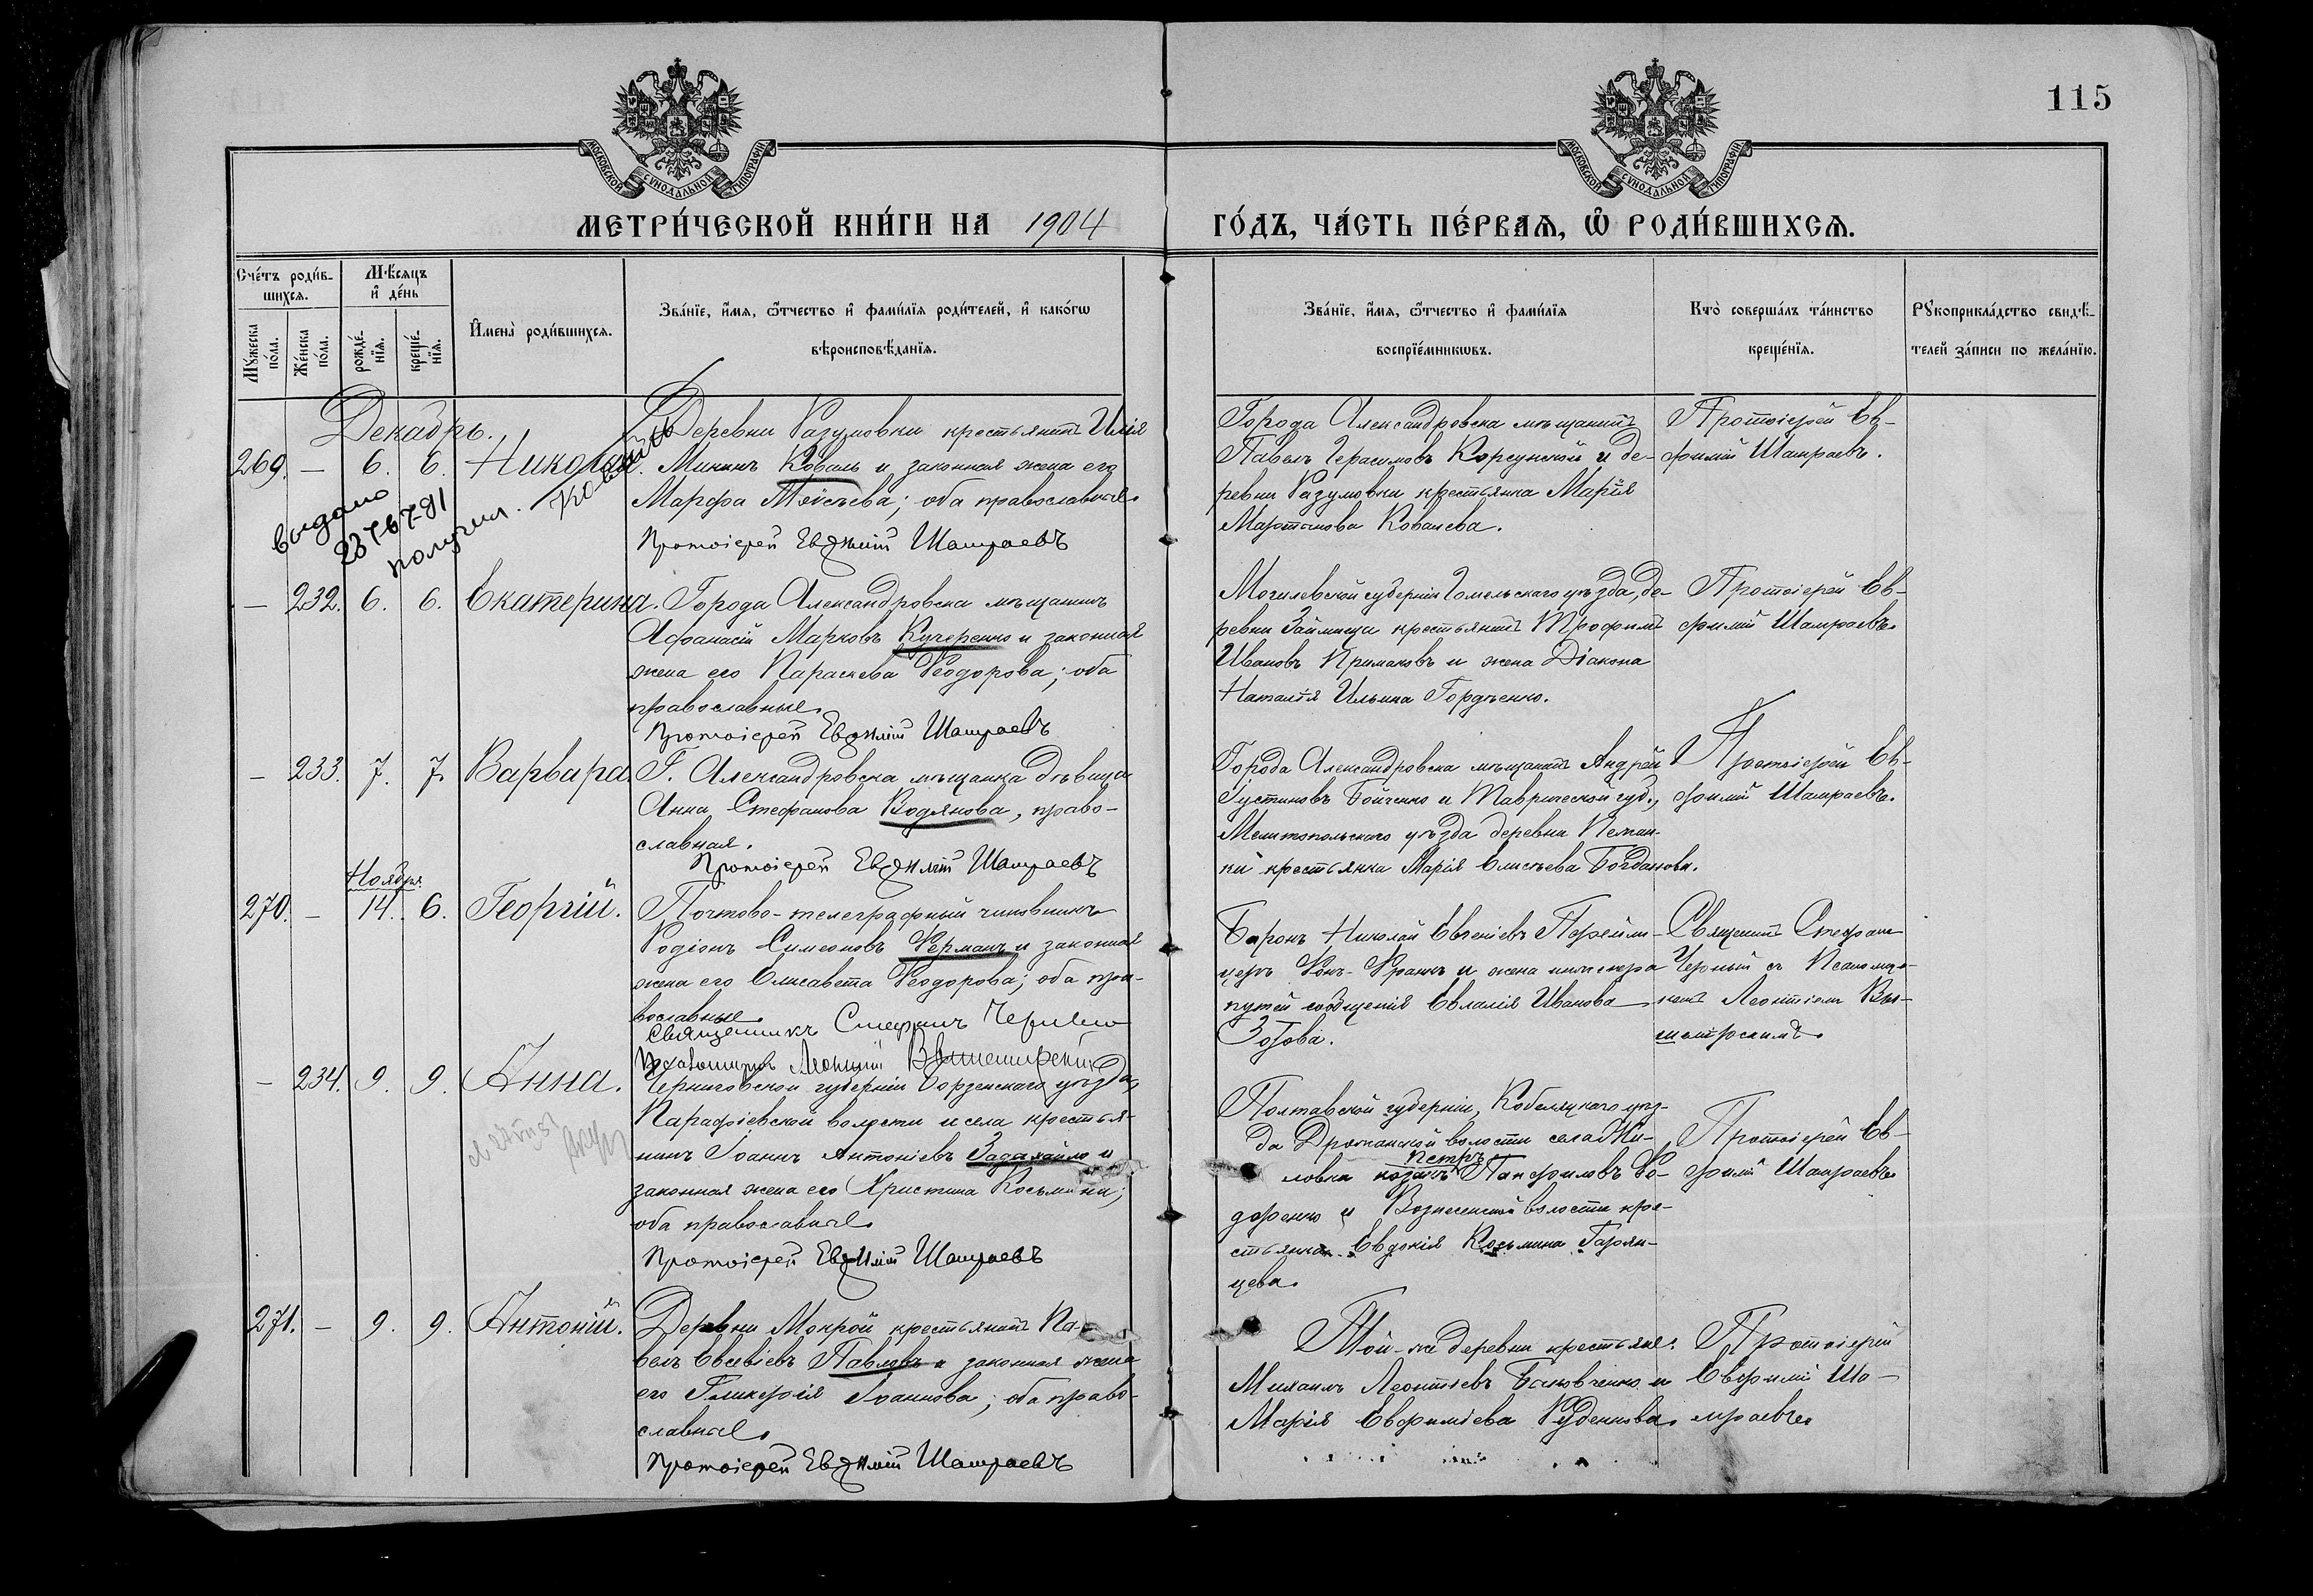 115
МОСКОВСКОЙ СѴНОДАЛЬНОЙ ТИПОГРАФІИ
МОСКОВСКОЙ СѴНОДАЛЬНОЙ ТИПОГРАФІИ
МЕТРИ́ЧЕСКОЙ КНИ́ГИ НА 1904
ГО́ДЪ, ЧА́СТЬ ПЕ́РВАѦ, Ѡ҆ РОДИ́ВШИХСѦ.
Сче́тъ роди́в-
шихсѧ.
Мѣ́сѧцъ
и҆ де́нь
Мꙋ́жеска
по́ла.
Же́нска
по́ла.
рожде́-
нїѧ.
креще́-
нїѧ.
И҆мена̀ роди́вшихсѧ.
Зва́нїе, и҆́мѧ, ѻ҆́тчество и҆ фами́лїѧ роди́телей, и҆ како́гѡ
вѣроисповѣ́данїѧ.
Зва́нїе, и҆́мѧ, ѻ҆́тчество и҆ фами́лїѧ
воспрїе́мникѡвъ.
Кто̀ соверша́лъ та́инство
креще́нїѧ.
Рꙋкоприкла́дство свидѣ́-
телей за́писи по жела́нїю.
Декабрь.
269. — 6. 6. Николай.
выдано
237679
получил. Коваль
Деревни Разумовки крестьянинъ Илія
Мининъ Коваль и законная жена его
Марфа Моѵсѣева; оба православные.
Протоіерей Евѳимій Шамраевъ
Города Александровска мѣщанинъ
Павелъ Герасимовъ Корсунской и де-
ревни Разумовки крестьянка Марія
Мартынова Ковалева.
Протоіерей Ев-
фимій Шамраевъ.
— 232. 6. 6. Екатерина.
Города Александровска мѣщанинъ
Афанасій Марковъ Кучеренко и законная
жена его Параскева Ѳеодорова; оба
православные.
Протоіерей Евѳимій Шамраевъ
Могилевской губерніи Гомельскаго уѣзда, де-
ревни Займища крестьянинъ Трофимъ
Ивановъ Примаковъ и жена Діакона
Наталія Ильина Гордѣенко.
Протоіерей Ев-
фимій Шамраевъ.
— 233. 7. 7. Варвара.
Г. Александровска мѣщанка дѣвица
Анна Стефанова Водянова, право-
славная.
Протоіерей Евѳимій Шамраевъ
Города Александровска мѣщанинъ Андрей
Густиновъ Бойченко и Таврической губ.,
Мелитопольскаго уѣзда деревни
крестьянка Марія Елисѣева Богданова.
Протоіерей Ев-
фимій Шамраевъ.
Ноября
270. — 14. 6. Георгій.
Почтово-телеграфный чиновникъ
Родіонъ Симеоновъ Ферманъ и законная
жена его Елисавета Ѳеодорова; оба пра-
вославные.
Священникъ Стефанъ Черный
Псаломщикъ Леонтій
Баронъ Николай Евгеніевъ
Фонъ- и жена инженера
путей сообщенія Евлалія Иванова
Зотова.
Священникъ Стефанъ
Черный съ Псаломщи-
комъ Леонтіемъ Вы-
— 234. 9. 9. Анна.
Черниговской губерніи Борзенскаго уѣзда,
Парафіевской волости и села крестья-
нинъ Іоаннъ Антоніевъ Задахайло и
законная жена его Христина Косьмина;
оба православные.
Протоіерей Евѳимій Шамраевъ
Полтавской губерніи, Кобеляцкаго уѣз-
да волости села Ки-
Петръ
ловки козакъ Панфиловъ Фе-
доренко и Вознесенской волости кре-
стьянка Евдокія Косьмина Гарян-
цева.
Протоіерей Ев-
фимій Шамраевъ
271. — 9. 9. Антоній.
Деревни Мокрой крестьянинъ Па-
велъ Евсевіевъ Павловъ и законная жена
его Гликерія Іоаннова; оба право-
славные.
Протоіерей Евѳимій Шамраевъ
Той-же деревни крестьяне:
Михаилъ Леонтіевъ Баковченко и
Марія Евфиміева Руденкова.
Протоіерей
Евфимій Ша-
мраевъ.